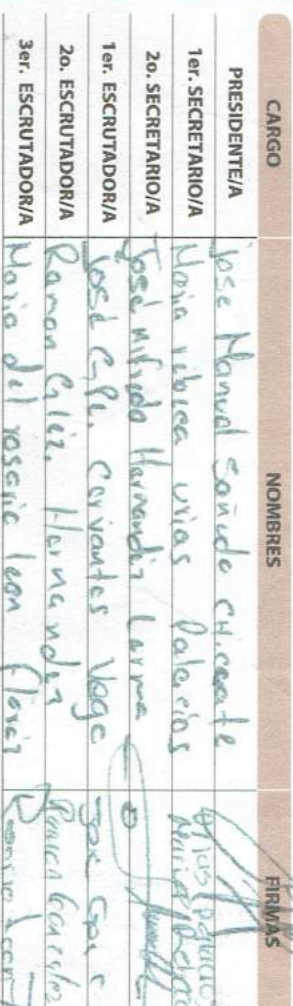 CARGO NOMBRES FIRMAS
PRESIDENTE/A Jose Manuel Sañudo
1er. SECRETARIO/A Maria rebeca urias Palacios
2o. SECRETARIO/A José Hernandez Lerma
1er. ESCRUTADOR/A José Gpe. Cervantes Vega Jose Gpe C
2o. ESCRUTADOR/A Ramon Glez. Hernandez Ramon Gonzalez
3er. ESCRUTADOR/A Maria del rosario leon flores Rosario Leon